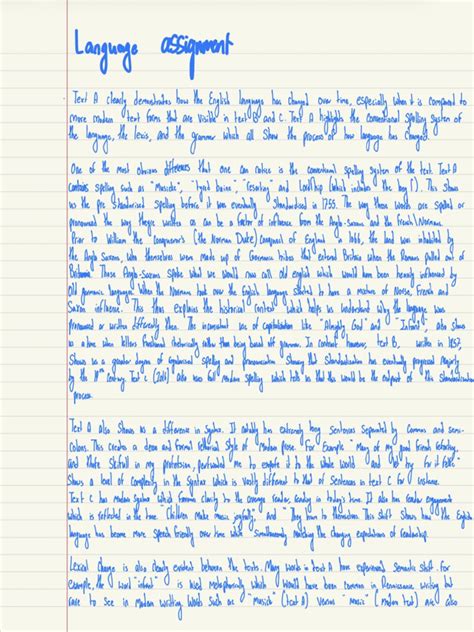 Language assignment
Text A clearly demonstrates how the English language has changed over time, especially when it is compared to
more modern text forms that are visible in text B and C. Text A highlights the conventional spelling system of
the language, the lexis, and the grammar which all show the process of how language has changed.
One of the most obvious differences that one can notice is the conventional spelling system of the text. Text A
contains spelling such as "Musicke", and Lordship (which includes the long ſ). This shows
us the pre standardised spelling before it was eventually standardised in 1755. The way these words are spelled or
pronounced the way they're written as can be a factor of influence from the Anglo-Saxons and the French/Normans.
Prior to William the Conqueror's (the Norman Duke) conquest of England in 1066, the land was inhabited by
the Anglo Saxons, who themselves were made up of Germanic tribes that entered Britain when the Romans pulled out of
Britannia. These Anglo-Saxons spoke what we would now call old english which would have been heavily influenced by
old germanic languages. When the Normans took over the English language started to have a mixture of Norse, French and
Saxon influence. This thus explains the historical context which helps us understand why the language was
pronounced or written differently then. The use of capitalisation like "Almighty God" and "Infants", also shows
us a time when letters functioned rhetorically rather than being based off grammar. In contrast however, text B, written in 1857,
shows us a greater degree of regularised spelling and punctuation showing that standardisation has eventually progressed majorly
by the 19th century. Text C (2018) also uses full modern spelling which tells us that this would be the output of the standardisation
process.
Text A also shows us a difference in syntax. It notably has extremely long sentences separated by commas and semi-
colons. This creates a and formal rhetorical style of modern prose. For example "Many of my good friends
and skilfull in my profession, perswaded me to expose it to the whole world and let by for it folow"
shows a level of complexity in the syntax which is vastly different to that of sentences in text C for instance.
Text C has modern syntax which favours clarity to the average reader, reading in today's time. It also has reader engagement
which is reflected in the tone "Children make music joyfully" and "They listen to themselves. This shift shows how the English
has become more speech friendly over time while simultaneously matching the changing expectations of readership.
Lexical change is also clearly evident between the texts. Many words in text A have experienced semantic shift. For
example, the word "infant" is used metaphorically which would have been common in Renaissance writing but
rare to see in modern writing. Words such as "Musicke" (text A) versus "music" (modern text) are also